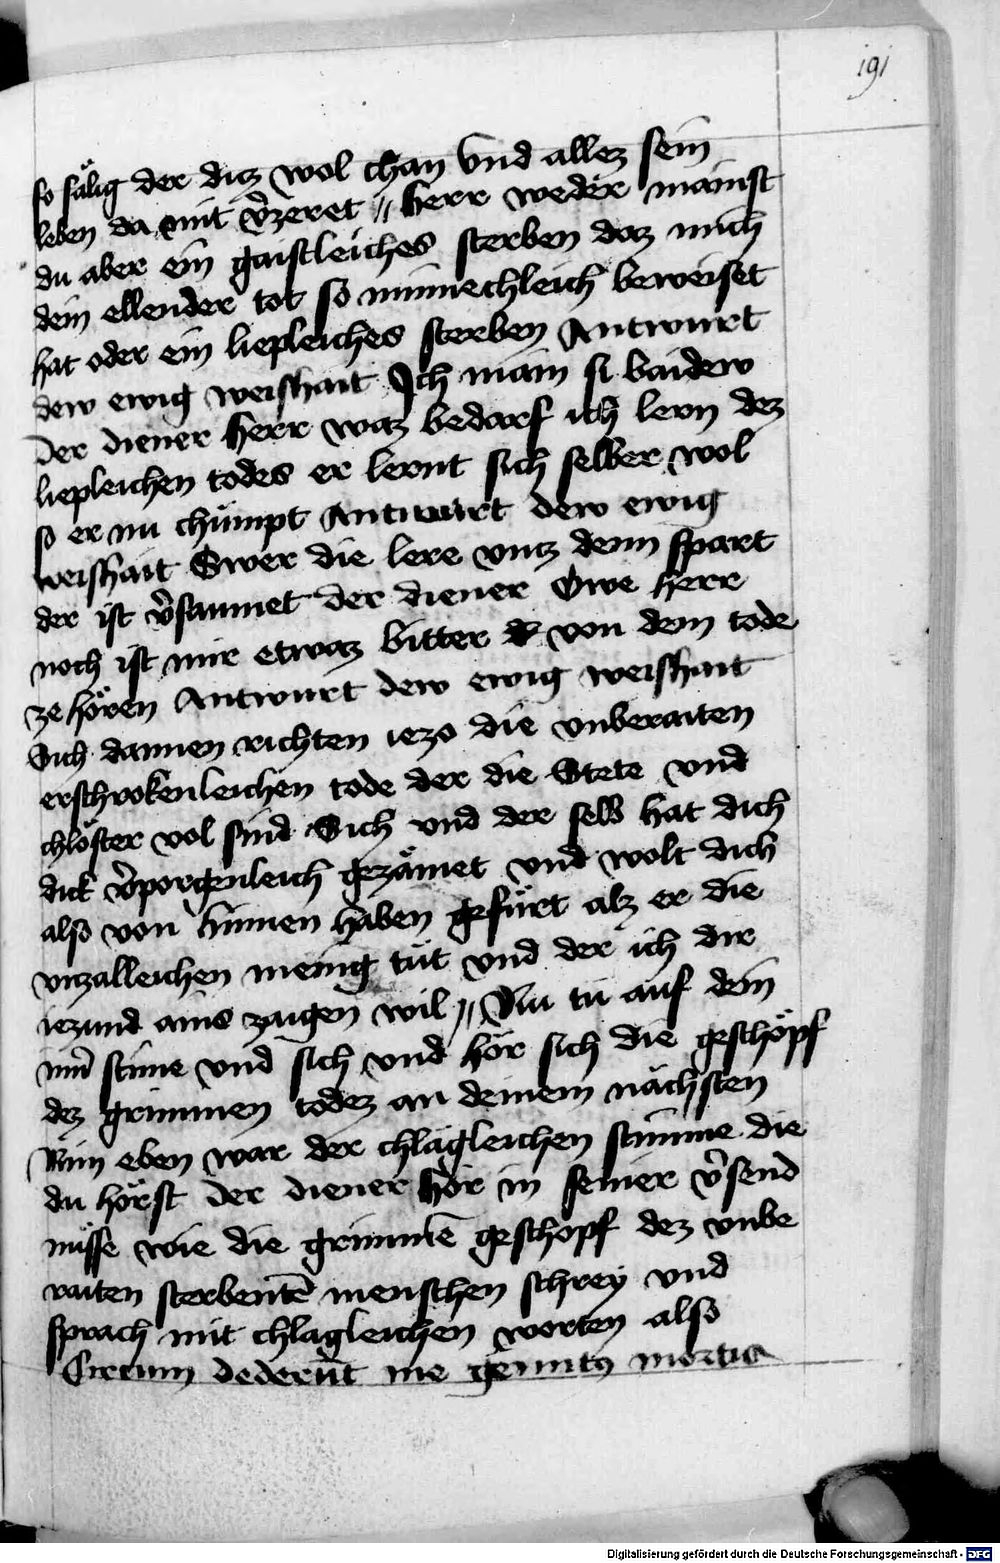 191
so sälig der dicz wol chan vnd allez sein
leben da mit v̄zeret // herr weder mainst
du aber ein gaistleiches sterben daz mich
dein ellender tot so minnechleich beweiset
hat oder ein liepleiches sterben Antwurt
dew ewig weishait Ich main si baidew
der diener herr waz bedarf ich lern dez
liepleichen todes er lernt sich selber wol
so er nu chümpt Antwurt dew ewig
weishait Swer die lere vncz denn spart
der ist v̄saumet der diener Owe herr
noch ist mir etwaz bitter von dem tode
ze hören Antwurt dew ewig weishait
Sich dannen richten iezo die vnberaiten
erschrokenleichen tode der die Stete vnd
chlöster vol sind Sich vnd der selb hat dich
dick v̄porgenleich gezämet vnd wolt dich
also von hinnen haben gefürt alz er die
vnzalleichen menig tüt vnd der ich dir
iezund ains zaigen wil // Nu tü auf dein
inn̄ sinne vnd sich vnd hör sich die geschöpf
dez grimmen todez an deinem nächsten
Nim eben war der chlägleichen stimme die
du hörst Der diener hör in seiner v̄send
nüsse wie die grimmē geschopf dez vnbe
raiten sterbentē menschen schrey vnd
sprach mit chlagleichen worten also
Circum dederūt me gemitꝰ mortis
Digitalisierung gefördert durch die Deutsche Forschungsgemeinschaft - DFG